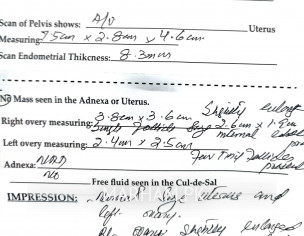 Scan of Pelvis shows: A/V Uterus
Measuring: 9.5cm x 2.8cm x 4.6cm
Scan Endometrial Thikcness: 8.3mm
No Mass seen in the Adnexa or Uterus. Slightly enlarge
Right overy measuring: 3.8cm x 3.6cm
Single Follicle Size 2.6cm x 1.9cm
Left overy measuring: 2.4cm x 2.5cm internal
Few Tiny Follicles
Adnexa: NAD present
No Free fluid seen in the Cul-de-Sal
IMPRESSION: Normal Size uterus and
left ovary.
Rt. ovary slightly enlarged